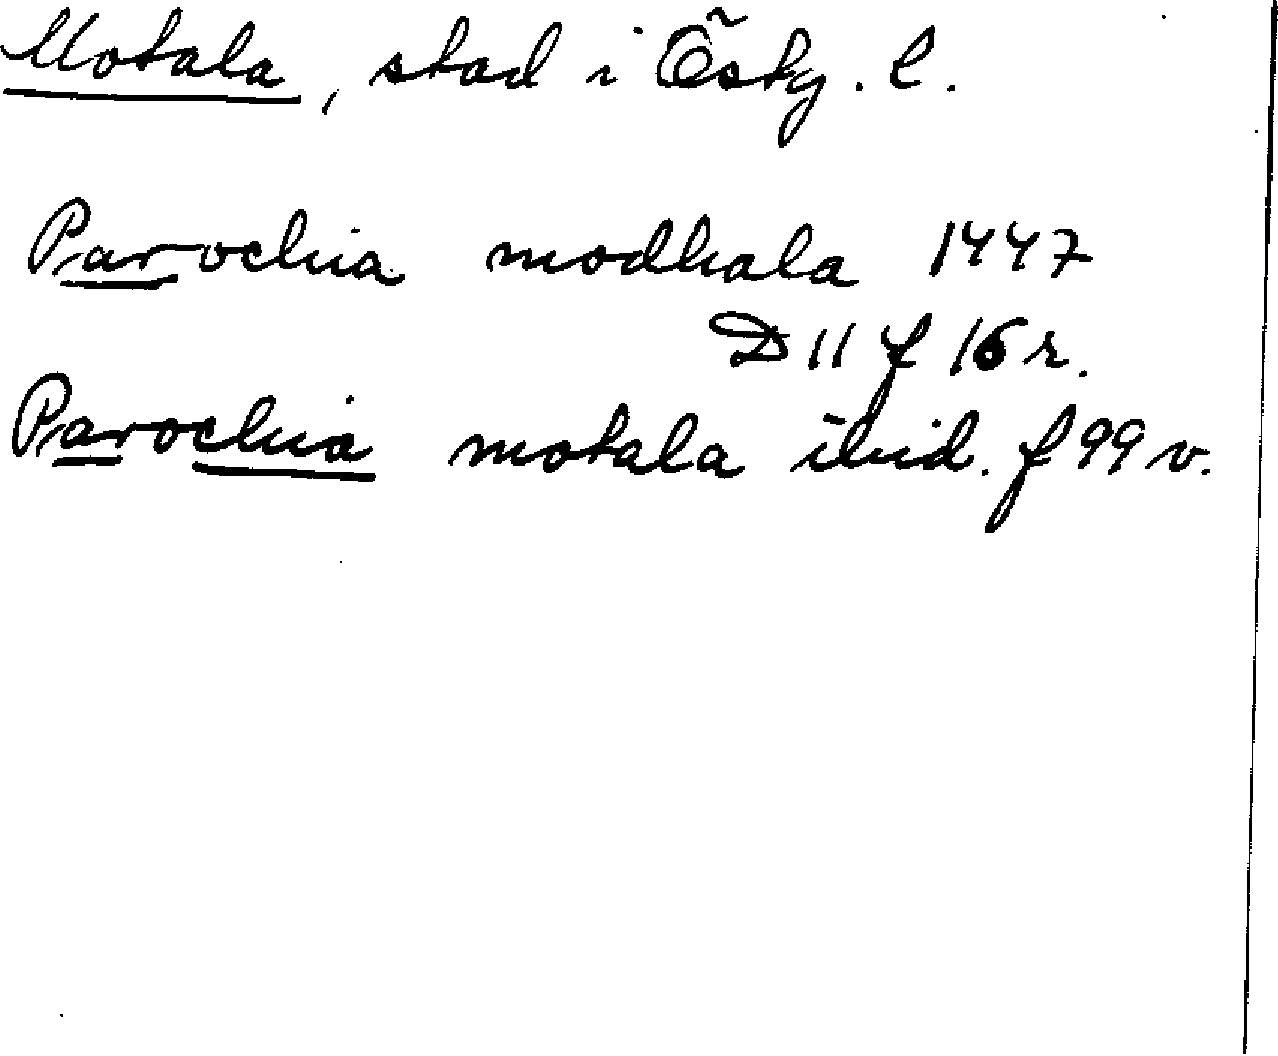 Motala, stad i Östg. l.
Parochia modhala 1447
D 11 f 16 r.
Parochia motala ibid. f 99 v.